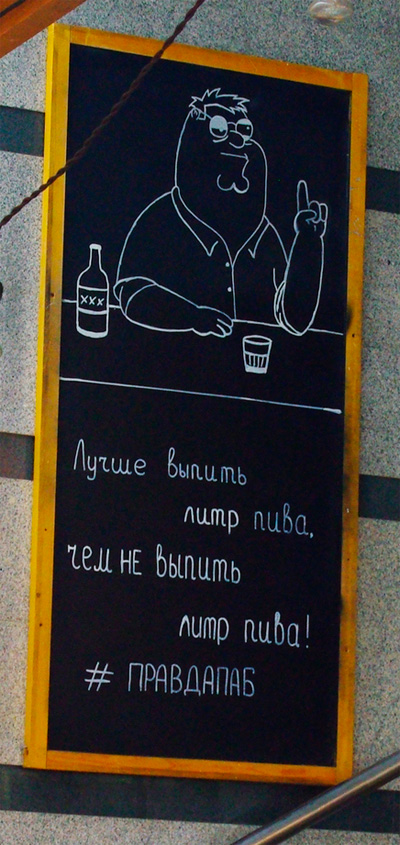 xxx
Лучше выпить
литр пива,
чем НЕ выпить
литр пива!
# ПРАВДАПАБ